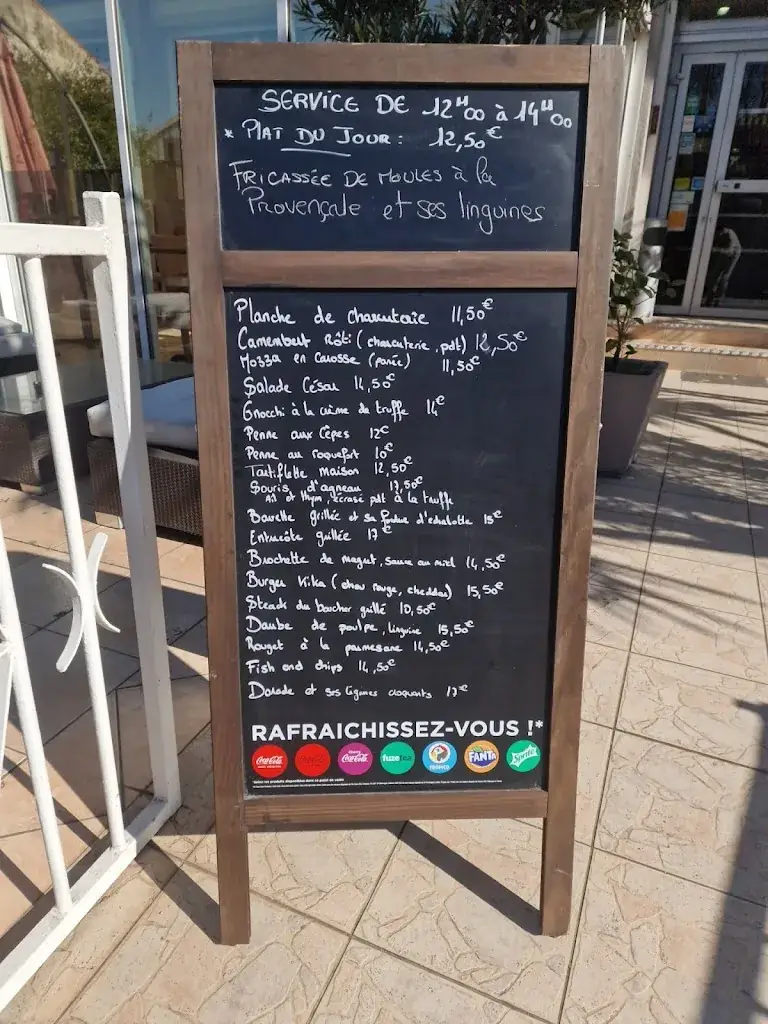 SERVICE DE 12H00 à 14H00
* PlAT DU JOUR : 12,50€
FRICASSÉE DE MOULES à la
PROVENÇALE et ses linguines
Planche de charcuterie 11,50€
Camembert Rôti (charcuterie, pdt) 12,50€
Mozza en carosse (panée) 11,50€
Salade César 14,50€
Gnocchi à la crème de truffe 14€
Penne aux Cèpes 12€
Penne au roquefort 10€
Tartiflette maison 12,50€
Souris d'agneau 17,50€
Ail et thym, écrasé pdt à la truffe
Bavette grillée et sa fondue d'echalotte 15€
Entrecôte grillée 17€
Brochette de magret, sauce au miel 14,50€
Burger Kika (chou rouge, cheddar) 15,50€
Steack du boucher grillé 10,50€
Daube de poulpe, linguine 15,50€
Rouget à la parmesane 14,50€
Fish and chips 14,50€
Dorade et ses légumes croquants 17€
RAFRAICHISSEZ-VOUS !*
Coca-Cola Coca-Cola fuzetea TROPICO FANTA Sprite